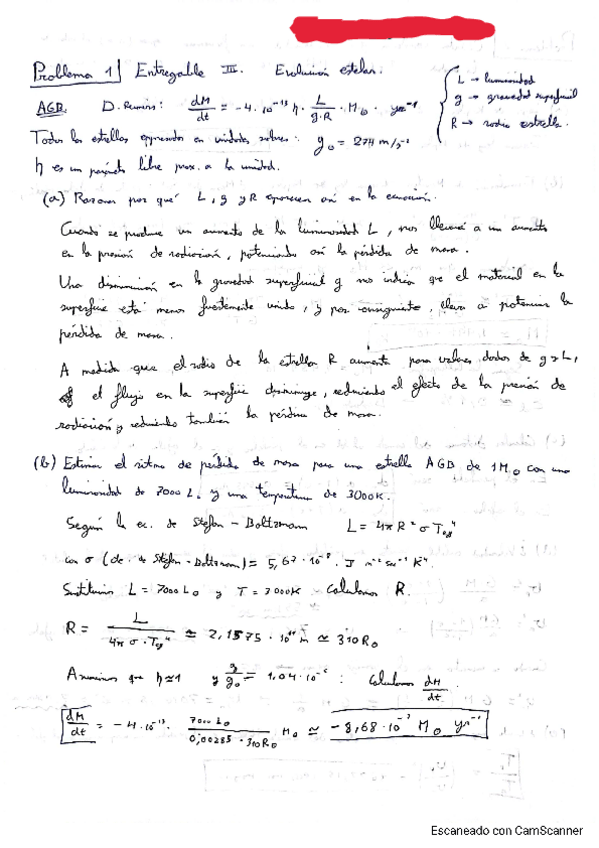 Problema 1 Entregable III. Evolución estelar.
AGB. D. Reimers: dM/dt = -4·10⁻¹³ η · L/(g·R) · M⊙ · yr⁻¹
L → luminosidad
g → gravedad superficial
R → radio estrella.
Todos los estrellas expresados en unidades solares: g⊙ = 274 m/s²
η es un parámetro libre prox. a la unidad.
(a) Razonar por qué L, g y R aparecen así en la ecuación.
Cuando se produce un aumento de la luminosidad L, nos llevará a un aumento
en la presión de radiación, potenciando así la pérdida de masa.
Una disminución en la gravedad superficial g nos indica que el material en la
superficie está menos fuertemente unido, y por consiguiente, lleva a potenciar la
pérdida de masa.
A medida que el radio de la estrella R aumenta para valores dados de g y L,
el flujo en la superficie disminuye, reduciendo el efecto de la presión de
radiación y reduciendo también la pérdida de masa.
(b) Estimar el ritmo de pérdida de masa para una estrella AGB de 1M⊙ con una
luminosidad de 7000 L⊙ y una temperatura de 3000K.
Según la ec. de Stefan - Boltzmann L = 4πR²σT⁴
con σ (cte. de Stefan - Boltzmann) = 5,67·10⁻⁸ · J m⁻² sec⁻¹ K⁻⁴
Sustituimos L = 7000 L⊙ y T = 3000K Calculamos R.
R = L/(4πσ·T⁴) ≃ 2,1575·10¹¹ m ≃ 310R⊙
Asumimos que η≃1 y g/g⊙ = 1,04·10⁻⁵ : Calculamos dM/dt.
dM/dt = -4·10⁻¹³ · 7000 L⊙/(0,00285·310R⊙) M⊙ ≃ -8,68·10⁻⁷ M⊙ yr⁻¹
Escaneado con CamScanner